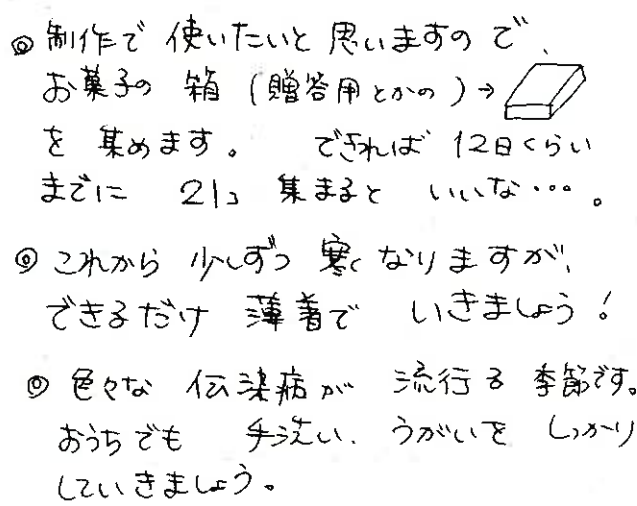 ◎ 制作で 使いたいと 思いますので、
お菓子の 箱 (贈答用とかの)→
を 集めます。 できれば 12日くらい
までに 21コ 集まると いいな…。
◎ これから 少しずつ 寒くなりますが、
できるだけ 薄着で いきましょう!
◎ 色々な 伝染病が 流行る 季節です。
おうちでも 手洗い、うがいを しっかり
していきましょう。